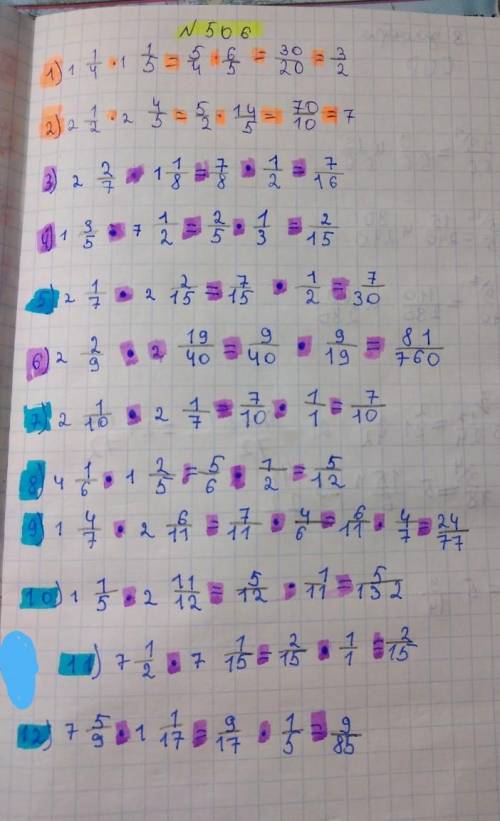 N 506
1) 1 1/4 · 1 1/5 = 5/4 · 6/5 = 30/20 = 3/2
2) 2 1/2 · 2 4/5 = 5/2 · 14/5 = 70/10 = 7
3) 2 2/7 · 1 1/8 = 7/8 · 1/2 = 7/16
4) 1 3/5 · 7 1/2 = 2/5 · 1/3 = 2/15
5) 2 1/7 · 2 2/15 = 7/15 · 1/2 = 7/30
6) 2 2/9 · 2 19/40 = 9/40 · 9/19 = 81/760
7) 2 1/10 · 2 1/7 = 7/10 · 1/1 = 7/10
8) 4 1/6 · 1 2/5 = 5/6 · 1/2 = 5/12
9) 1 4/7 · 2 6/11 = 7/11 · 4/6 = 6/11 · 4/7 = 24/77
10) 1 1/5 · 2 11/12 = 5/12 · 1/11 = 5/132
11) 7 1/2 · 7 1/15 = 2/15 · 1/1 = 2/15
12) 7 5/9 · 1 1/17 = 9/17 · 1/5 = 9/85